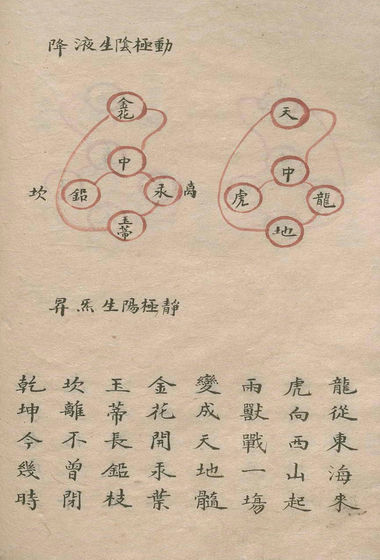 動極陰生液降
天
中
龍
虎
地
金花
中
離
汞
鉛
坎
玉蒂
靜極陽生炁昇
龍從東海來
虎向西山起
兩獸戰一塲
變成天地髓
金花開汞葉
玉蒂長鉛枝
坎離不曾閉
乾坤今幾時